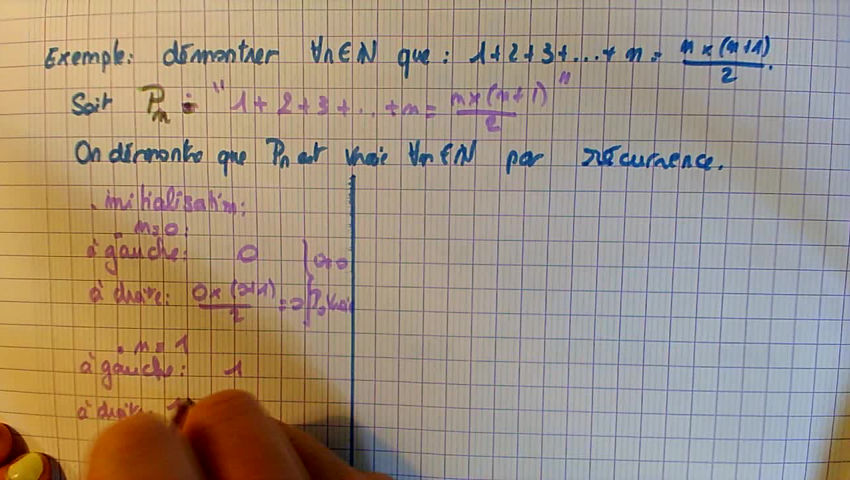 Exemple: démontrer ∀n∈N que : 1+2+3+...+n = n×(n+1)/2.
Soit Pn = "1+2+3+...+n = n×(n+1)/2"
On démontre que Pn est vraie ∀n∈N par récurrence.
. initialisation:
. n=0:
à gauche: 0 } 0=0
à droite: 0×(0+1)/2 = 0 } P0 vraie
. n=1
à gauche: 1
à droite: 1